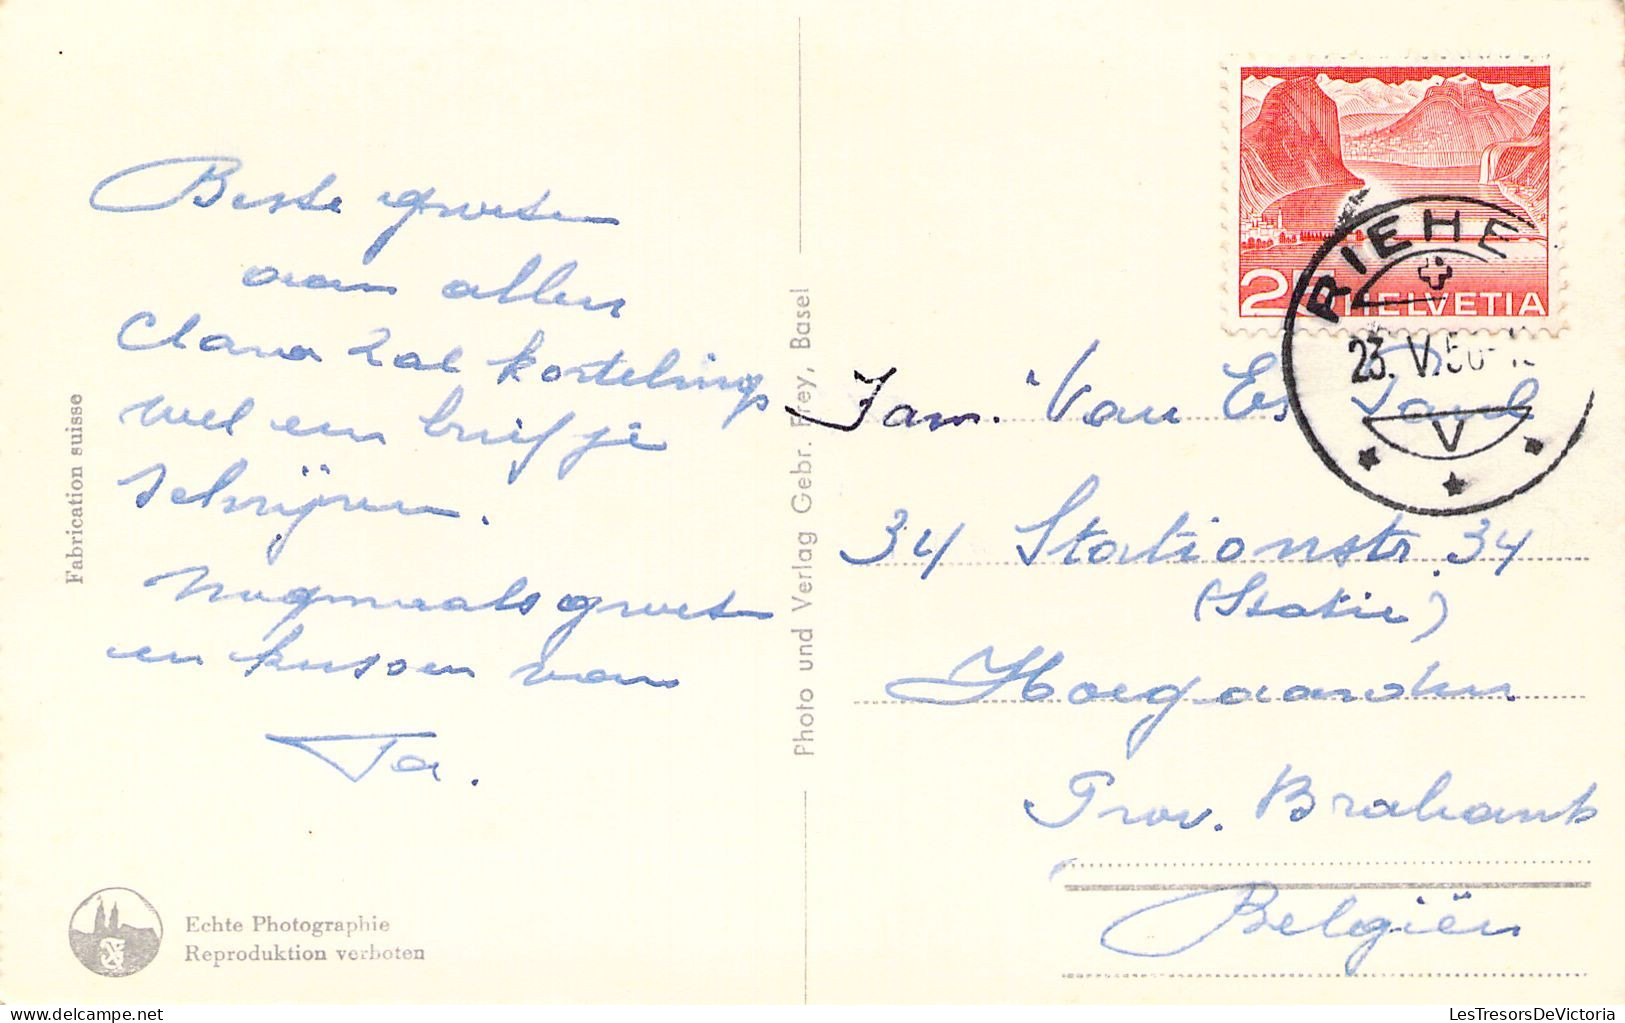 Beste groeten
aan allen
Clara zal kortelings
wel een briefje
schrijven.
Nogmaals groeten
en kussen van
Ta.
Fabrication suisse
Echte Photographie
Reproduktion verboten
Photo und Verlag Gebr. Frey, Basel
25 HELVETIA
RIEHE
23. V. 50
V
Fam. Van Es Paul
34 Stationstr. 34
(Statie)
Hoegaarden
Prov. Brabant
Belgiën
LesTresorsDeVictoria